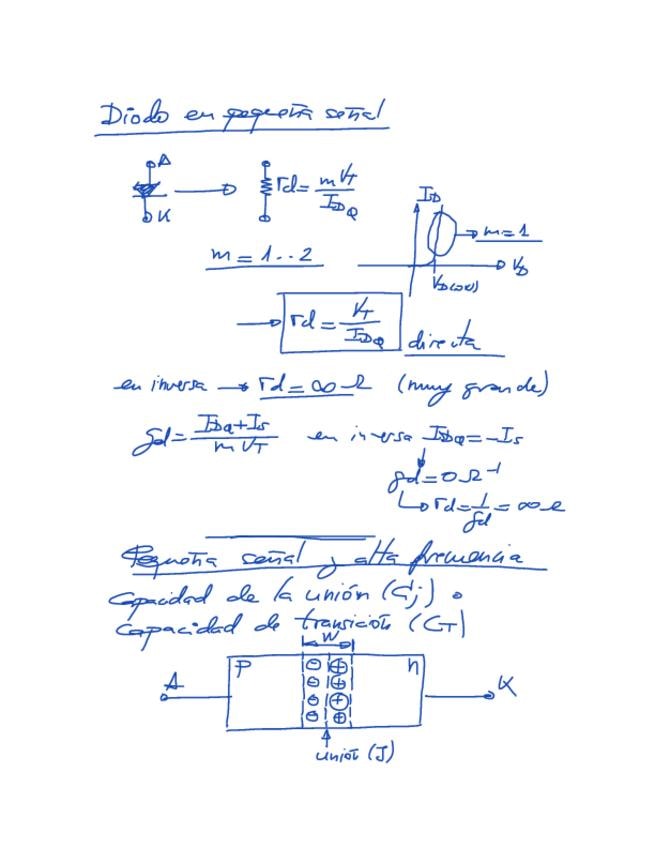 Diodo en pequeña señal
A
K
rd = mV_T / I_DQ
I_D
m = 1
V_D
V_D(ON)
m = 1..2
rd = V_T / I_DQ
directa
en inversa → rd = ∞ Ω (muy grande)
gd = (I_DQ + I_S) / mV_T en inversa I_DQ = -I_S
gd = 0 Ω⁻¹
rd = 1/gd = ∞ Ω
Pequeña señal y alta frecuencia
Capacidad de la unión (Cj) o
capacidad de transición (C_T)
W
P n
A K
unión (J)